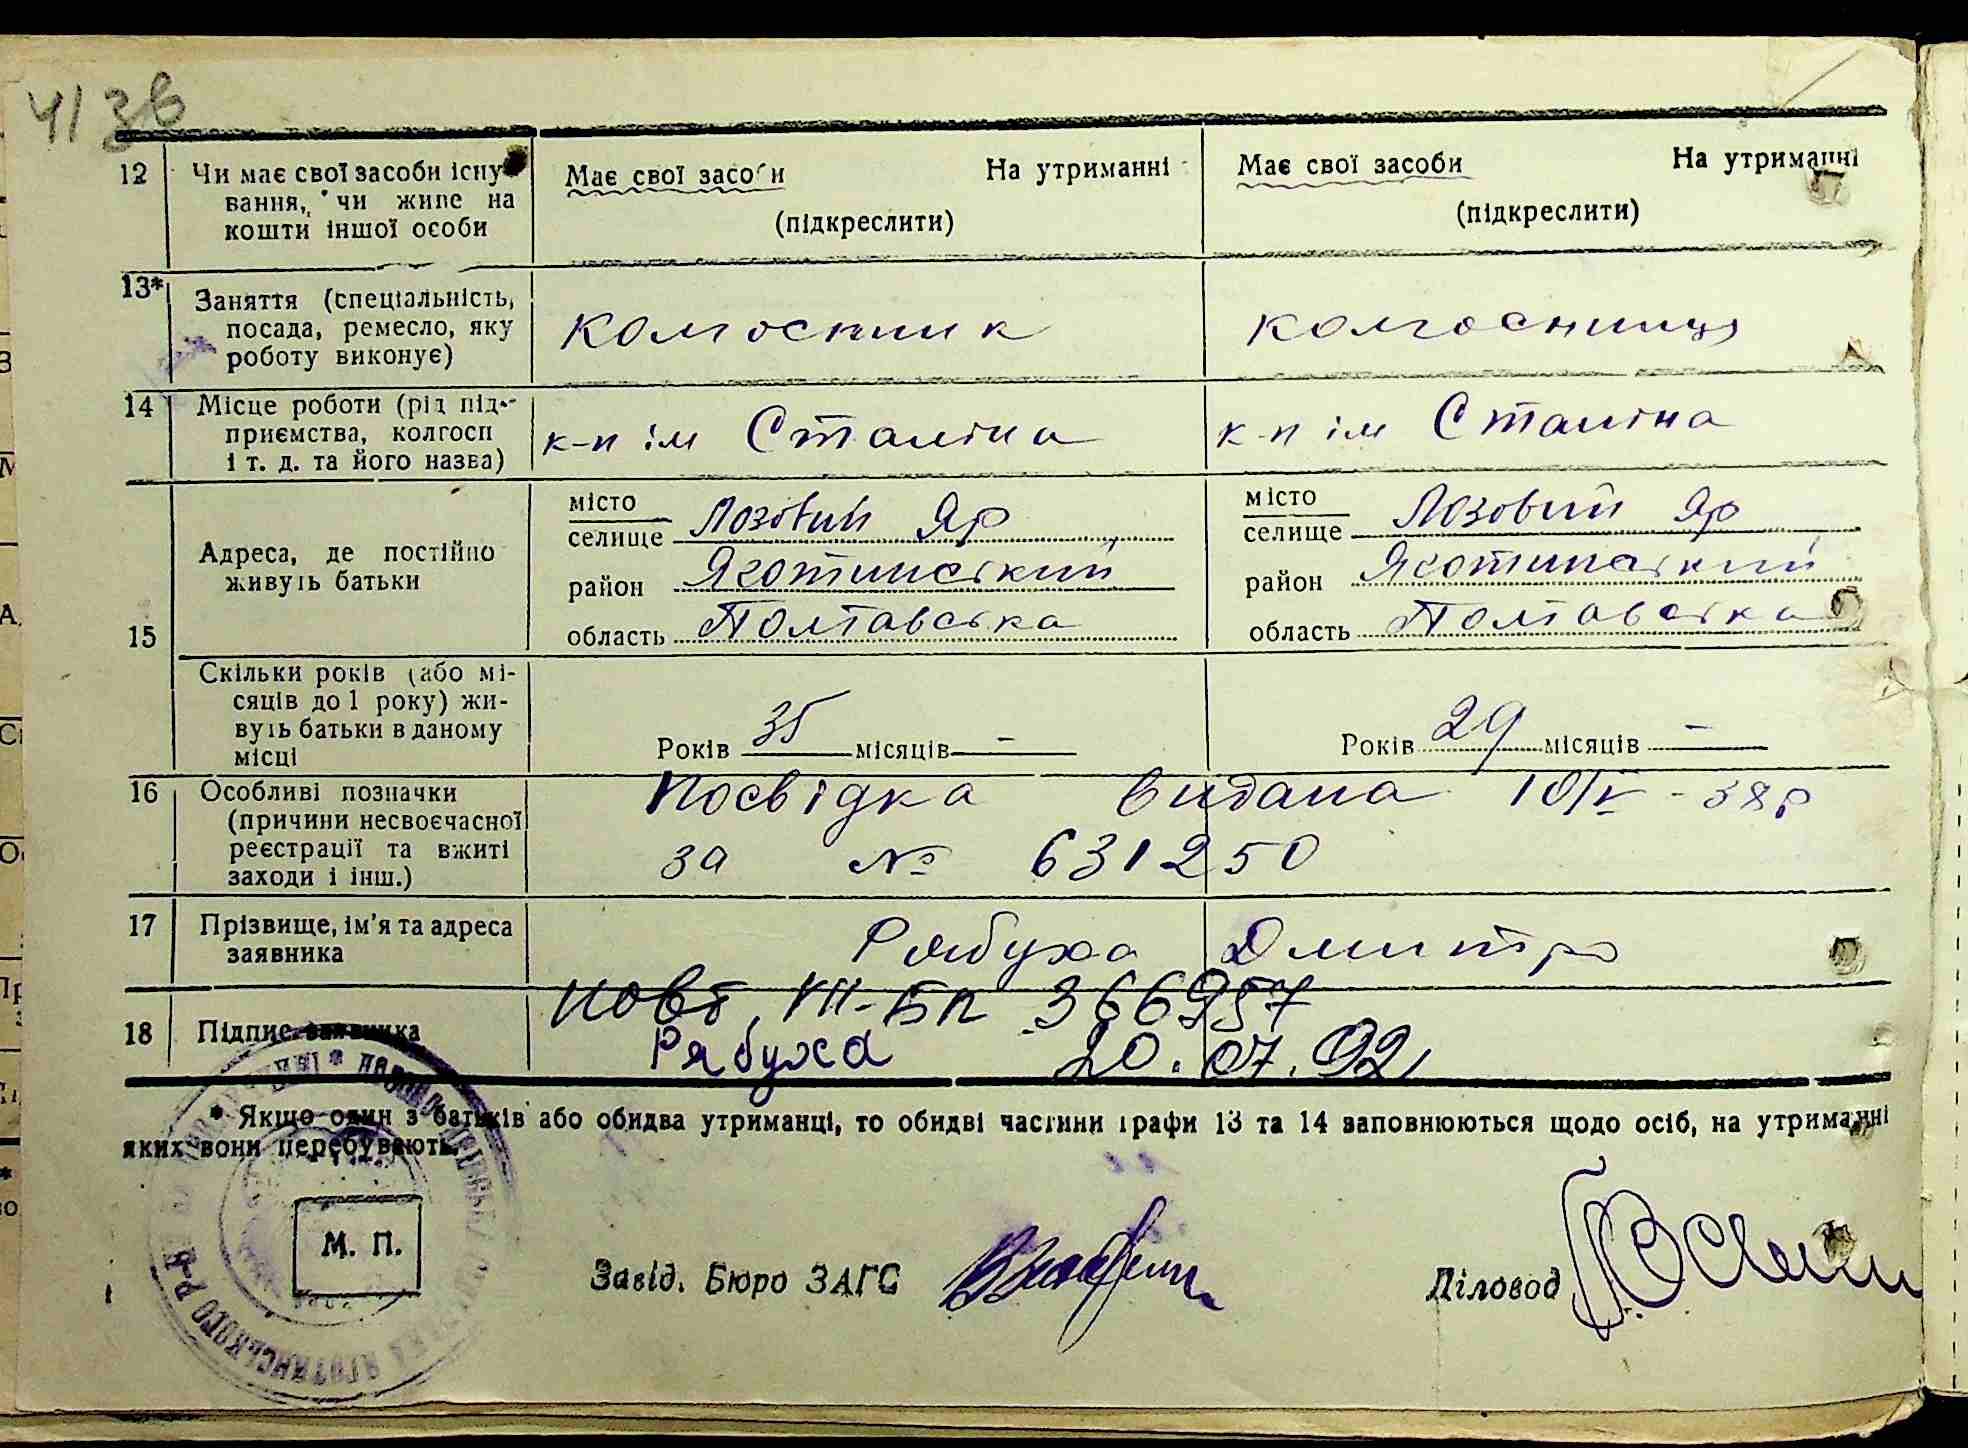 4138
12 Чи має свої засоби існу
вання, чи живе на
кошти іншої особи
Має свої засоби На утриманні
(підкреслити)
Має свої засоби На утриманні
(підкреслити)
13* Заняття (спеціальність,
посада, ремесло, яку
роботу виконує)
колгоспник
колгоспниця
14 Місце роботи (рід під-
приємства, колгосп
і т. д. та його назва)
к-п ім Сталіна
к-п ім Сталіна
15 Адреса, де постійно
живуть батьки
місто
селище Лозовий Яр
район Яготинський
область Полтавська
місто
селище Лозовий Яр
район Яготинський
область Полтавська
Скільки років (або мі-
сяців до 1 року) жи-
вуть батьки в даному
місці
Років 35 місяців –
Років 29 місяців –
16 Особливі позначки
(причини несвоєчасної
реєстрації та вжиті
заходи і інш.)
Посвідка видана 10/V - 38р
за № 631250
17 Прізвище, ім'я та адреса
заявника
Рябуха Дмитро
18 Підпис заявника
повт. VII-БК 366957
Рябуха 20.07.92
* Якщо один з батьків або обидва утриманці, то обидві частини графи 13 та 14 заповнюються щодо осіб, на утриманні
яких вони перебувають.
М. П.
Завід. Бюро ЗАГС
Діловод
ЯГОТИНСЬКОГО Р-Н